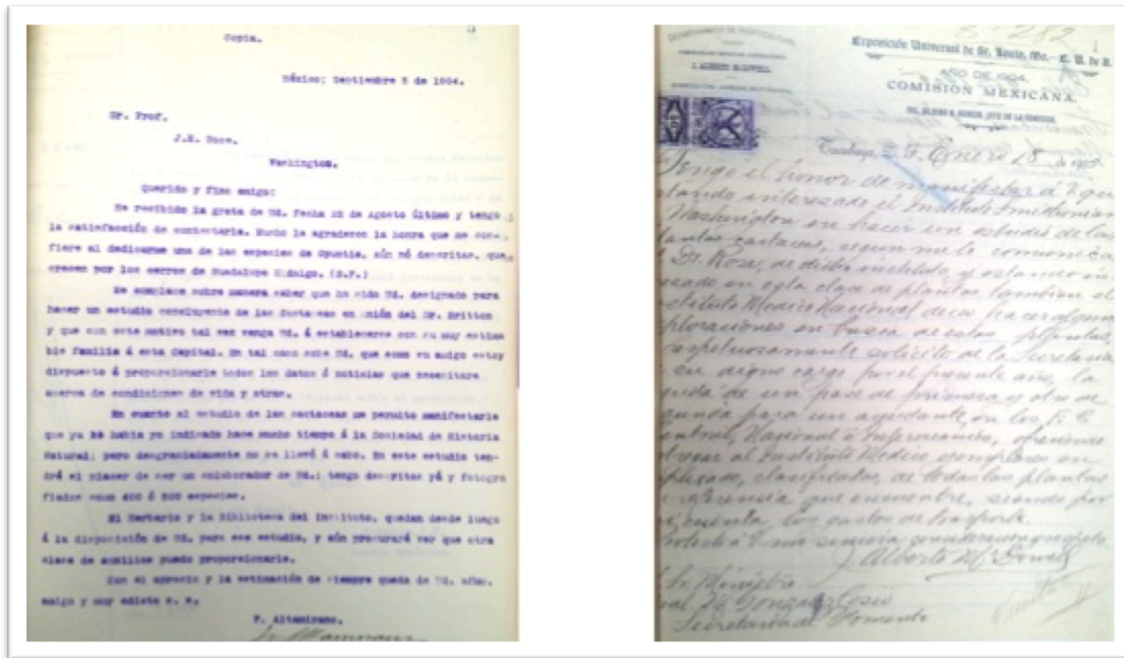 Copia.
México; Septiembre 5 de 1904.
Sr. Prof.
J.N. Rose.
Washington.
Querido y fino amigo:
He recibido la grata de Ud. fecha 22 de Agosto último y tengo
la satisfacción de contestarla. Mucho le agradezco la honra que me con-
fiere al dedicarme una de las especies de Opuntia, aún nó descritas, que
crecen por los cerros de Guadalupe Hidalgo. (D.F.)
Me complace sobre manera saber que ha sido Ud. designado para
hacer un estudio concluyente de las Cactaceas en unión del Dr. Britton
y que con este motivo tal vez venga Ud. á establecerse con su muy estima
ble familia á esta Capital. En tal caso sabe Ud. que como su amigo estoy
dispuesto á proporcionarle todos los datos ó noticias que necesitare
acerca de condiciones de vida y otras.
En cuanto al estudio de las cactaceas me permito manifestarle
que ya había yo indicado hace mucho tiempo á la Sociedad de Historia
Natural; pero desgraciadamente no se llevó á cabo. En este estudio ten-
dré el placer de ser un colaborador de Ud.; tengo descritas yá y fotogra
fiadas como 400 ó 500 especies.
El Herbario y la Biblioteca del Instituto, quedan desde luego
á la disposición de Ud. para ese estudio, y aún procuraré ver que otra
clase de auxilios puedo proporcionarle.
Con el aprecio y la estimación de siempre queda de Ud. afmo.
amigo y muy adicto s. s.
F. Altamirano.
282
J. ALBERTO McDOWELL
Exposición Universal de St. Louis, Mo. E. U. de A.
AÑO DE 1904.
COMISIÓN MEXICANA.
Tacubaya, D. F. Enero 18 de 1905
Tengo el honor de manifestar á V. que
estando interesado el Instituto Smithsonian
Washington en hacer un estudio de las
plantas cactaceas, segun me lo comunica
Dr. Rose, de dicho instituto, y estando
en esta clase de plantas tambien el
Instituto Medico Nacional desea hacer algunas
exploraciones en busca de estas plantas,
respetuosamente solicito de la Secretaria
su digno cargo por el presente año, la
de un pase de primera y otro de
segunda para un ayudante, en los F. C.
Central, Nacional é Interoceanico, ofreciendo
entregar al Instituto Medico ejemplares en
clasificados, de todas las plantas
referencia que encuentre, siendo por
mi cuenta, los gastos de trasporte.
Protesto á V. mi sincera consideracion y respeto
J. Alberto McDowell
Sr. Ministro
Gral. Gonzalez Cosio
Secretaria de Fomento